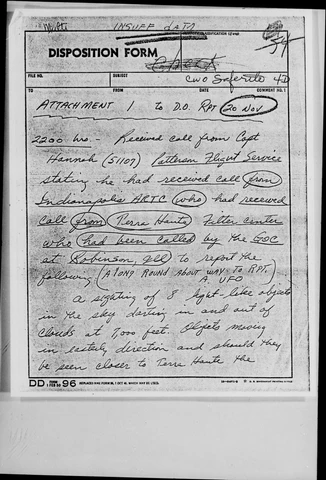 INSUFF DATA
CLASSIFICATION (If any)
DISPOSITION FORM
FILE NO.
SUBJECT
CWO Saferite 4D
TO
FROM
DATE
COMMENT NO. 1
ATTACHMENT 1 to D.O. RPT 20 NOV
2200 hrs. Received call from Capt
Hannah (51107) Patterson Flight Service
stating he had received call from
Indianapolis ARTC who had received
call from Terra Haute Filter center
who had been called by the GOC
at Robinson, Ill to report the
following (A LONG ROUND ABOUT WAY TO RPT.
A UFO
A sighting of 8 light-like objects
in the sky darting in and out of
clouds at 7000 feet. Objects moving
in easterly direction and should they
be seen closer to Terre Haute the
DD FORM 96
REPLACES NME FORM 96, 1 OCT 48, WHICH MAY BE USED.